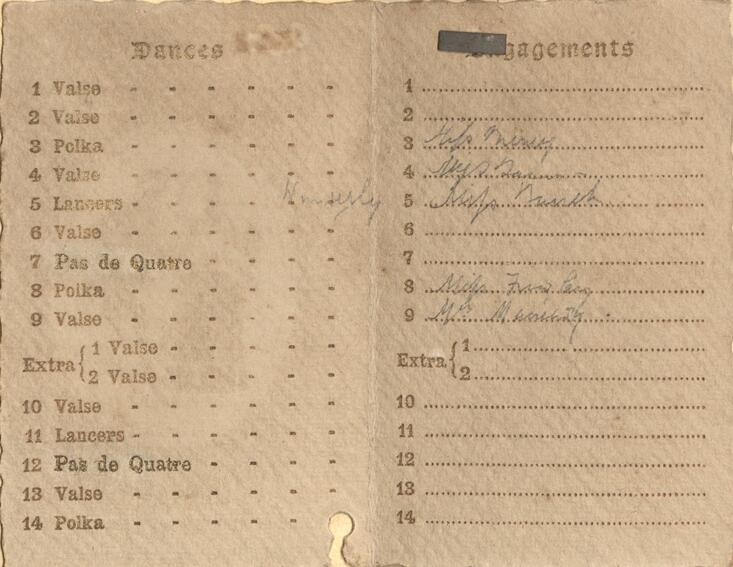 Dances
1 Valse
2 Valse
3 Polka
4 Valse
5 Lancers
6 Valse
7 Pas de Quatre
8 Polka
9 Valse
Extra
1 Valse
2 Valse
10 Valse
11 Lancers
12 Pas de Quatre
13 Valse
14 Polka
Engagements
1
2
3 Miss
4 Miss
5 Miss
6
7
8 Miss
9
Extra
1
2
10
11
12
13
14